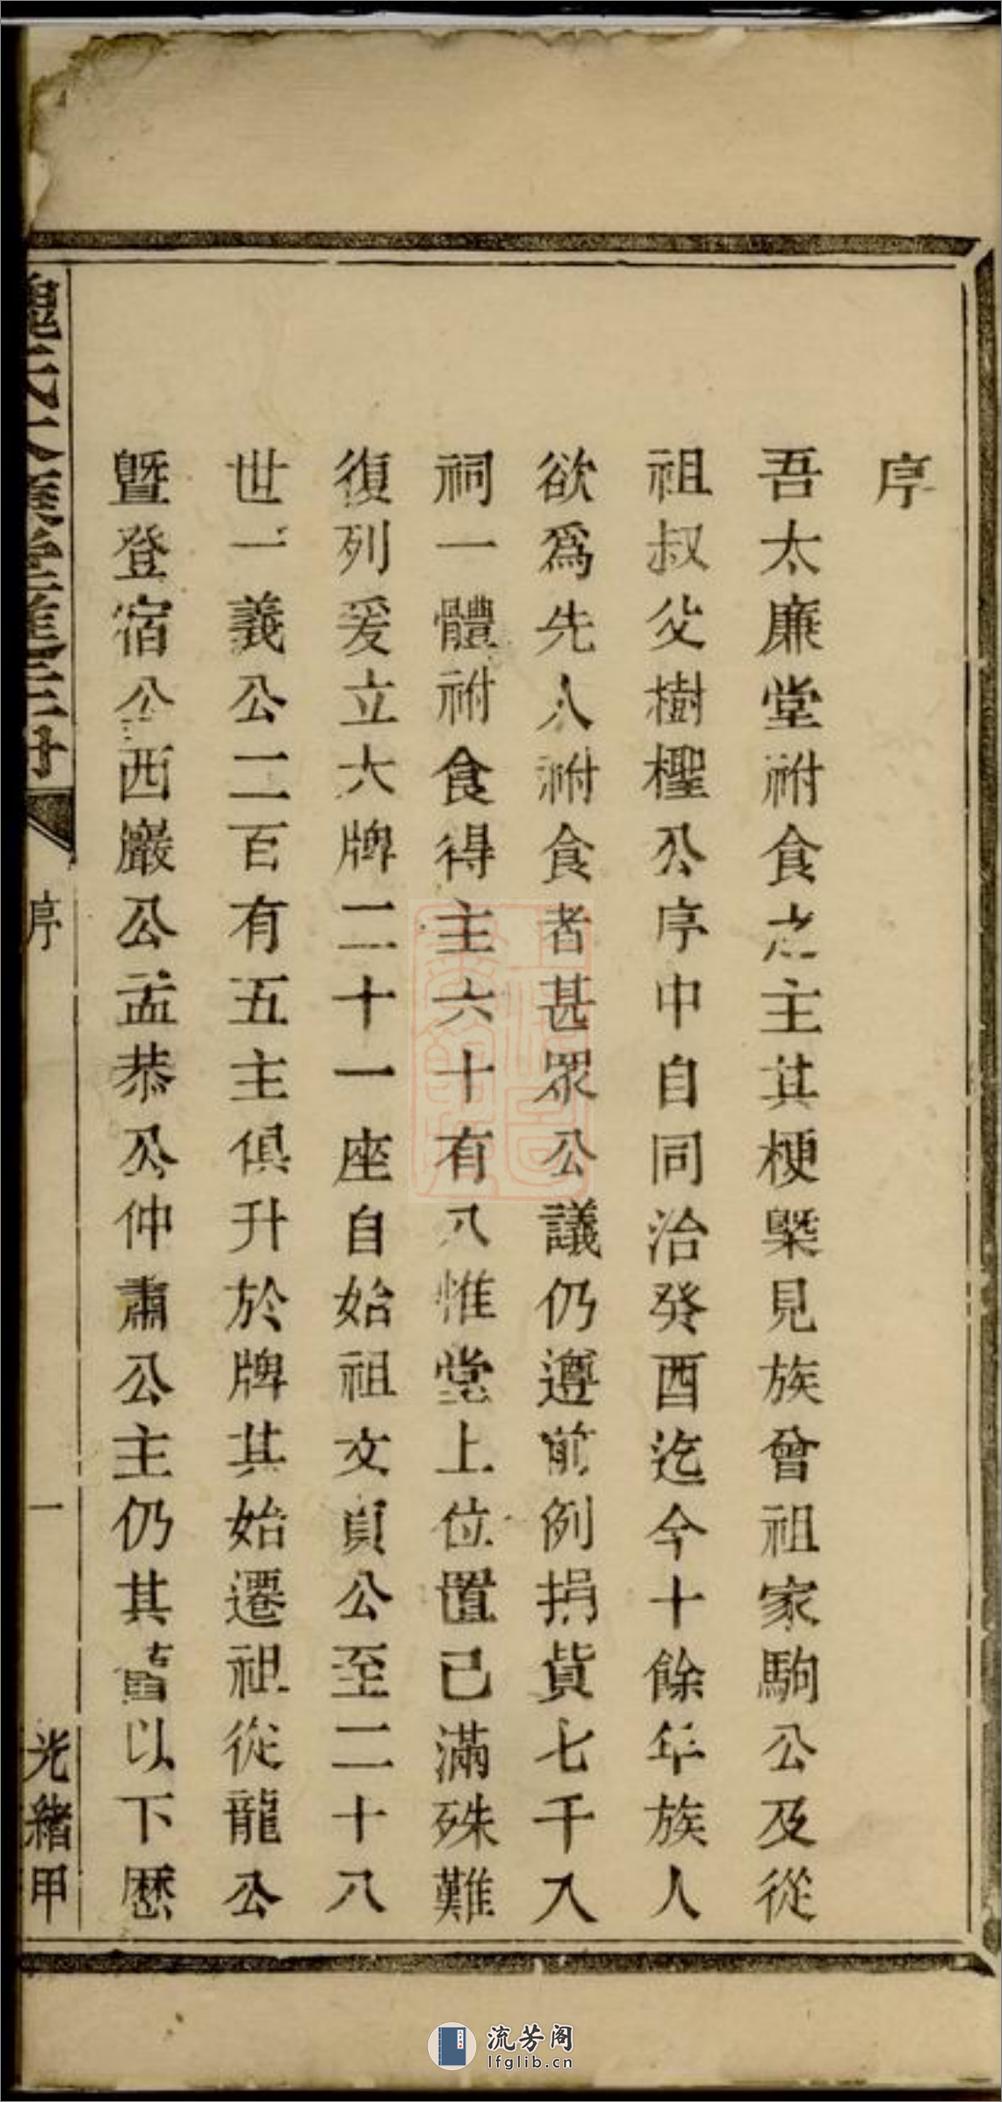 序
吾太廉堂祔食之主其梗槩見族曾祖家駒公及從
祖叔父樹檉公序中自同治癸酉迄今十餘年族人
欲爲先人祔食者甚眾公議仍遵前例捐貲七千入
祠一體祔食得主六十有八惟堂上位置已滿殊難
復列爰立大牌二十一座自始祖文貞公至二十八
世一義公二百有五主俱升於牌其始遷祖從龍公
暨登宿公西巖公孟恭公仲肅公主仍其舊以下歷
魏氏太廉堂進主冊
序
一
光緒甲
流芳阁
lfglib.cn